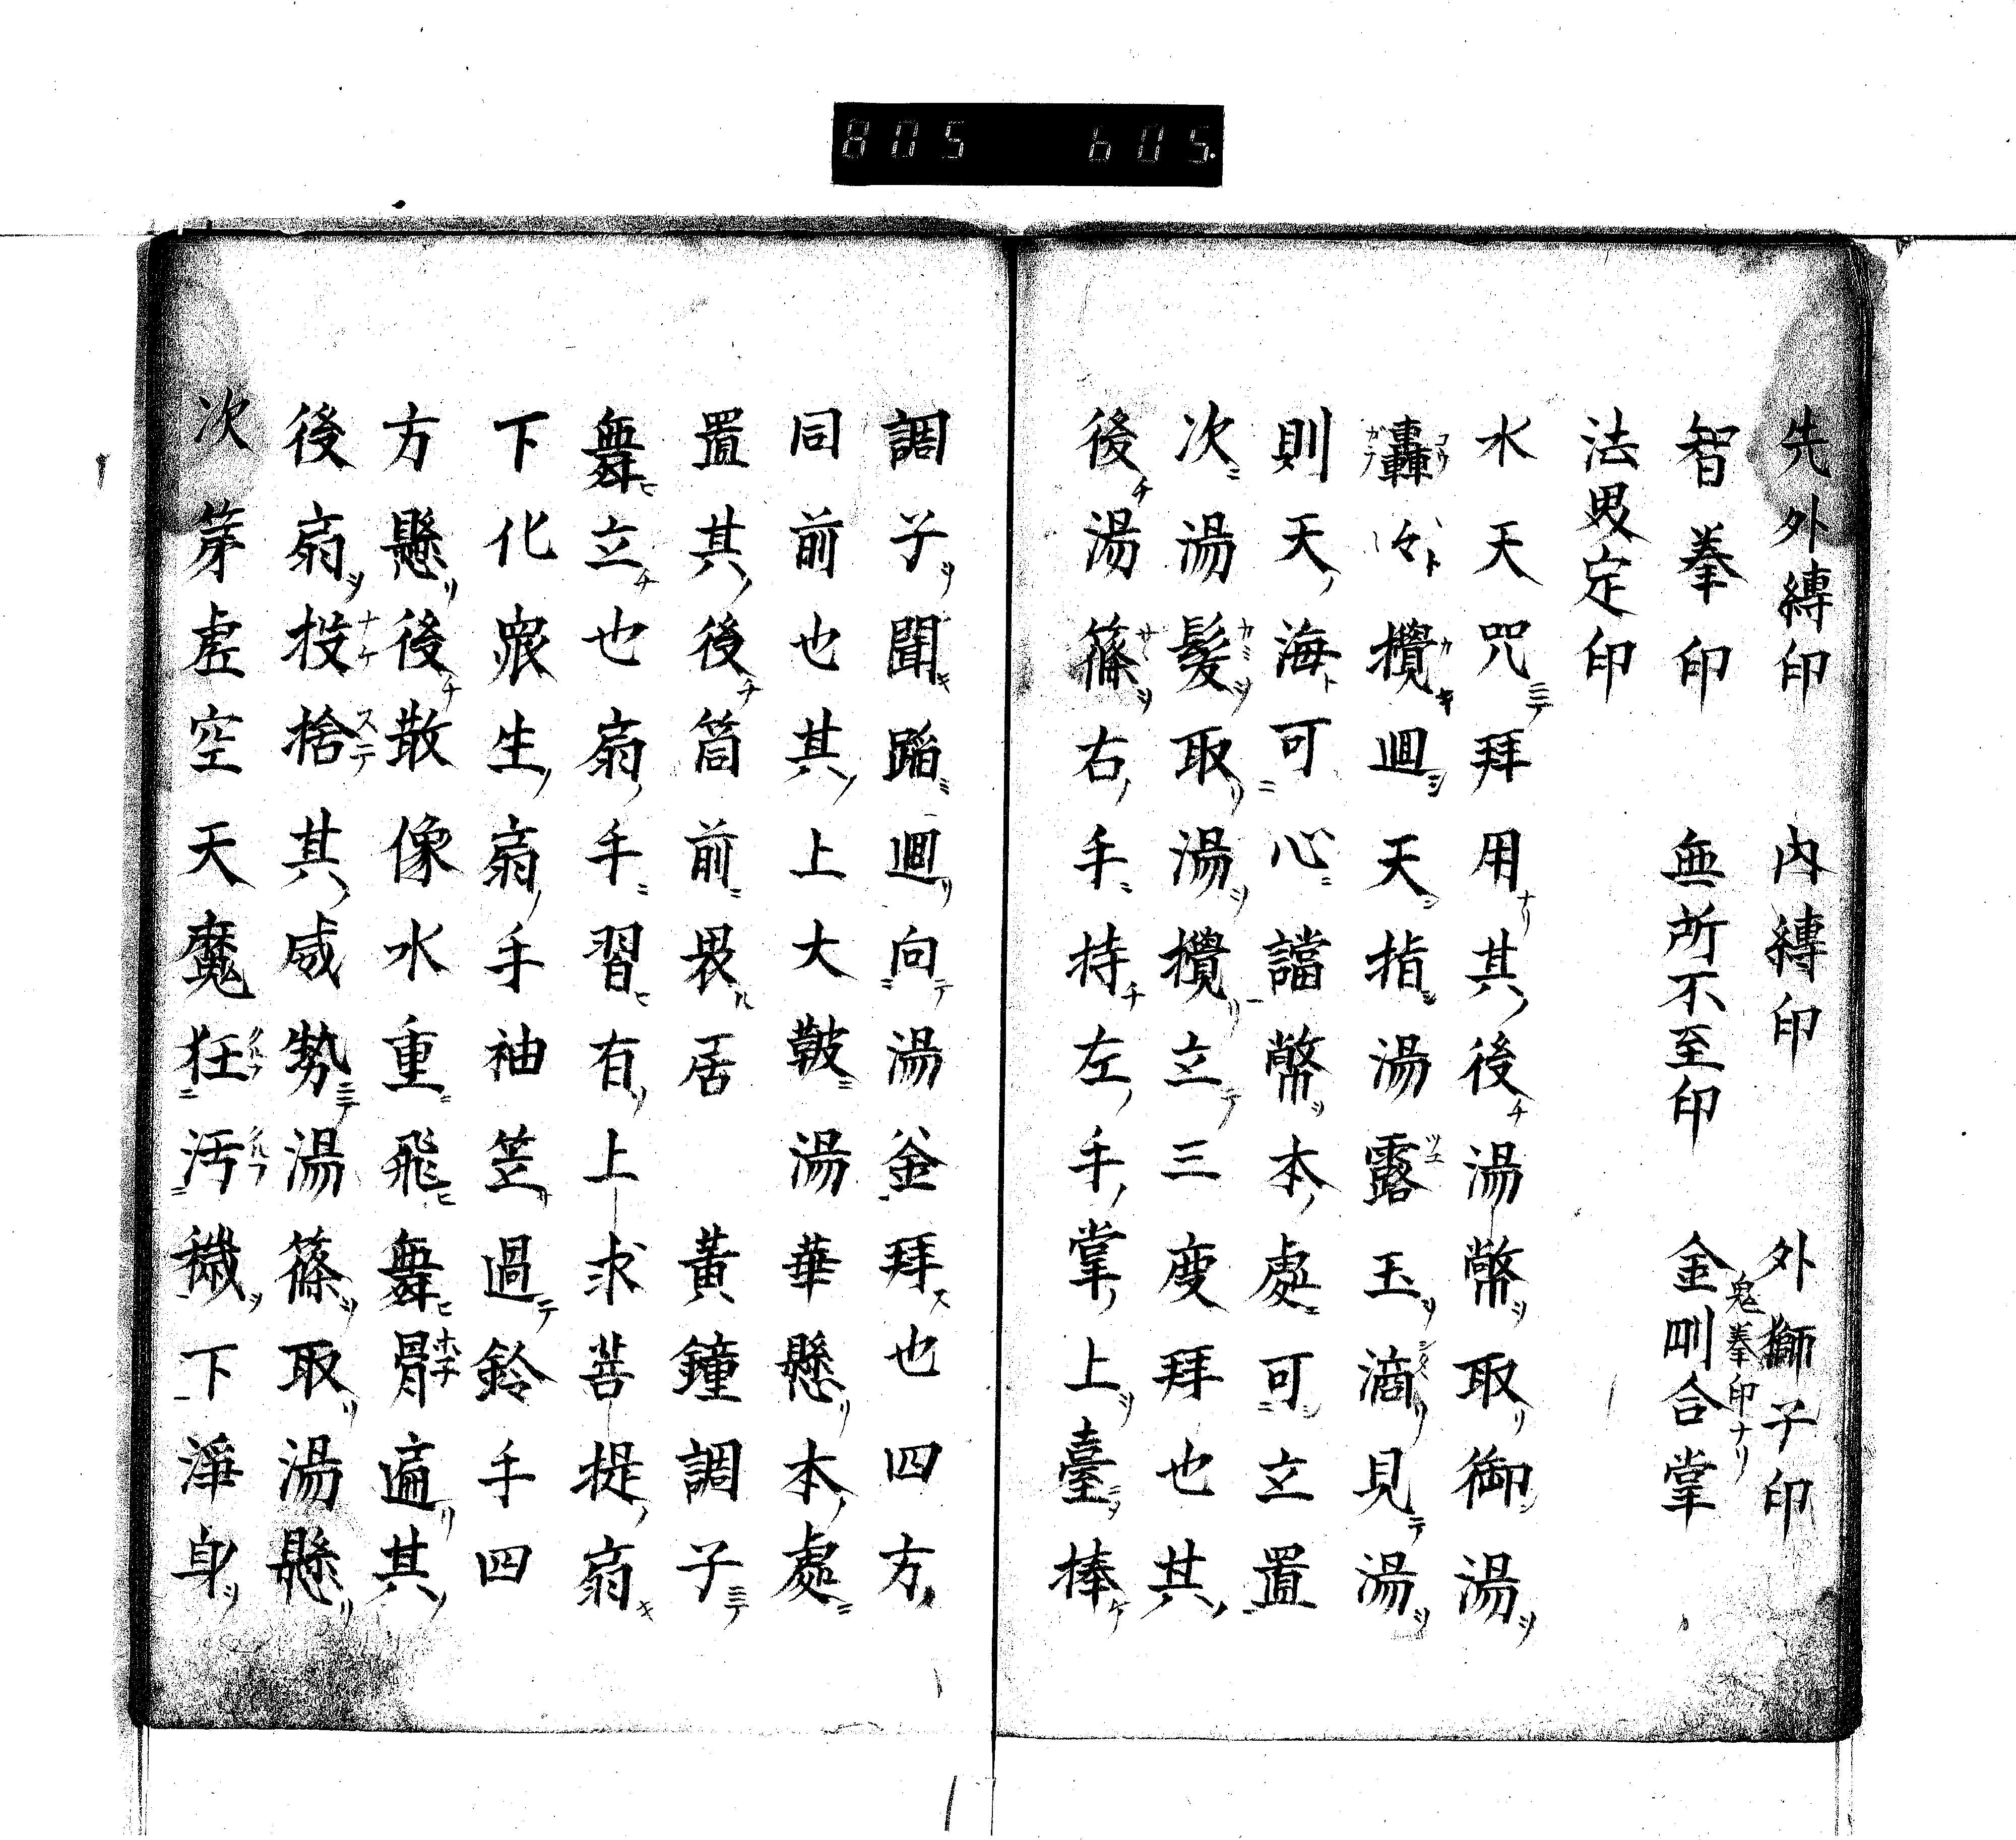 805 605.
先外縛印 内縛印 外獅子印
智拳印 無所不至印 金剛合掌
鬼拳印ナリ
法界定印
水天咒ニテ拜用ナリ其ノ後チ湯幣ヲ取リ御湯ヲ
轟々ト攪キ廻シ天ニ指シ湯露玉ヲ滴リ見テ湯ヲ
則天ノ海ト可ニ心ニ譡一幣ヲ本ノ處ニ可ニ立置
次ニ湯髮ヲ取リ湯ヲ攪リ立テ三度拜也其ノ
後チ湯篠ヲ右ノ手ニ持チ左ノ手ノ掌ノ上ヲ臺ニヲ捧ケ
調子ヲ聞キ蹈ミ廻リ向テ湯釜拜ス也四方ノ
同前也其ノ上大鼓ニ湯華懸リ本ノ處ニ
置其ノ後チ筒前ニ畏ル居 黃鐘調子ニテ
舞ヒ立チ也扇ノ手ニ習ヒ有リ上求菩提ノ扇キ
下化衆生ノ扇ノ手袖笠リ過テ鈴手四
方懸リ後チ散像水重ニ飛ヒ舞ヒ骨遍リ其ノ
後扇ヲ投捨テ其ノ威勢ニテ湯篠ヲ取リ湯懸リ
次 芽虛空天魔狂汚穢ヲ下淨身ヲ